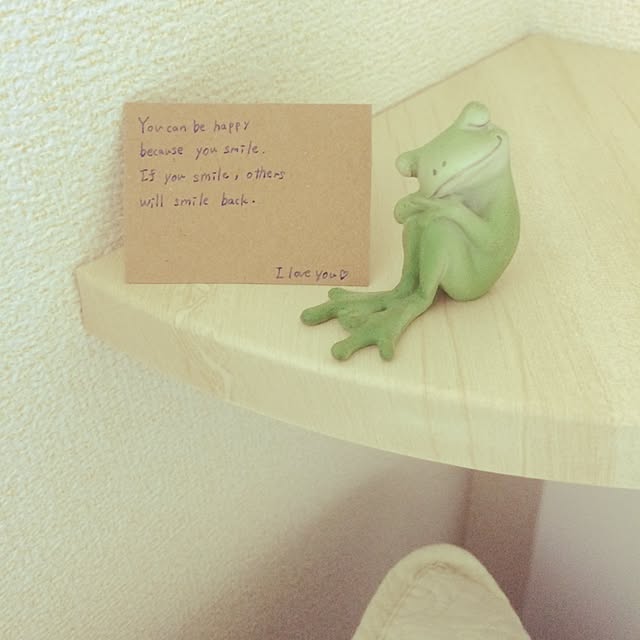 You can be happy
because you smile.
If you smile, others
will smile back.
I love you♡